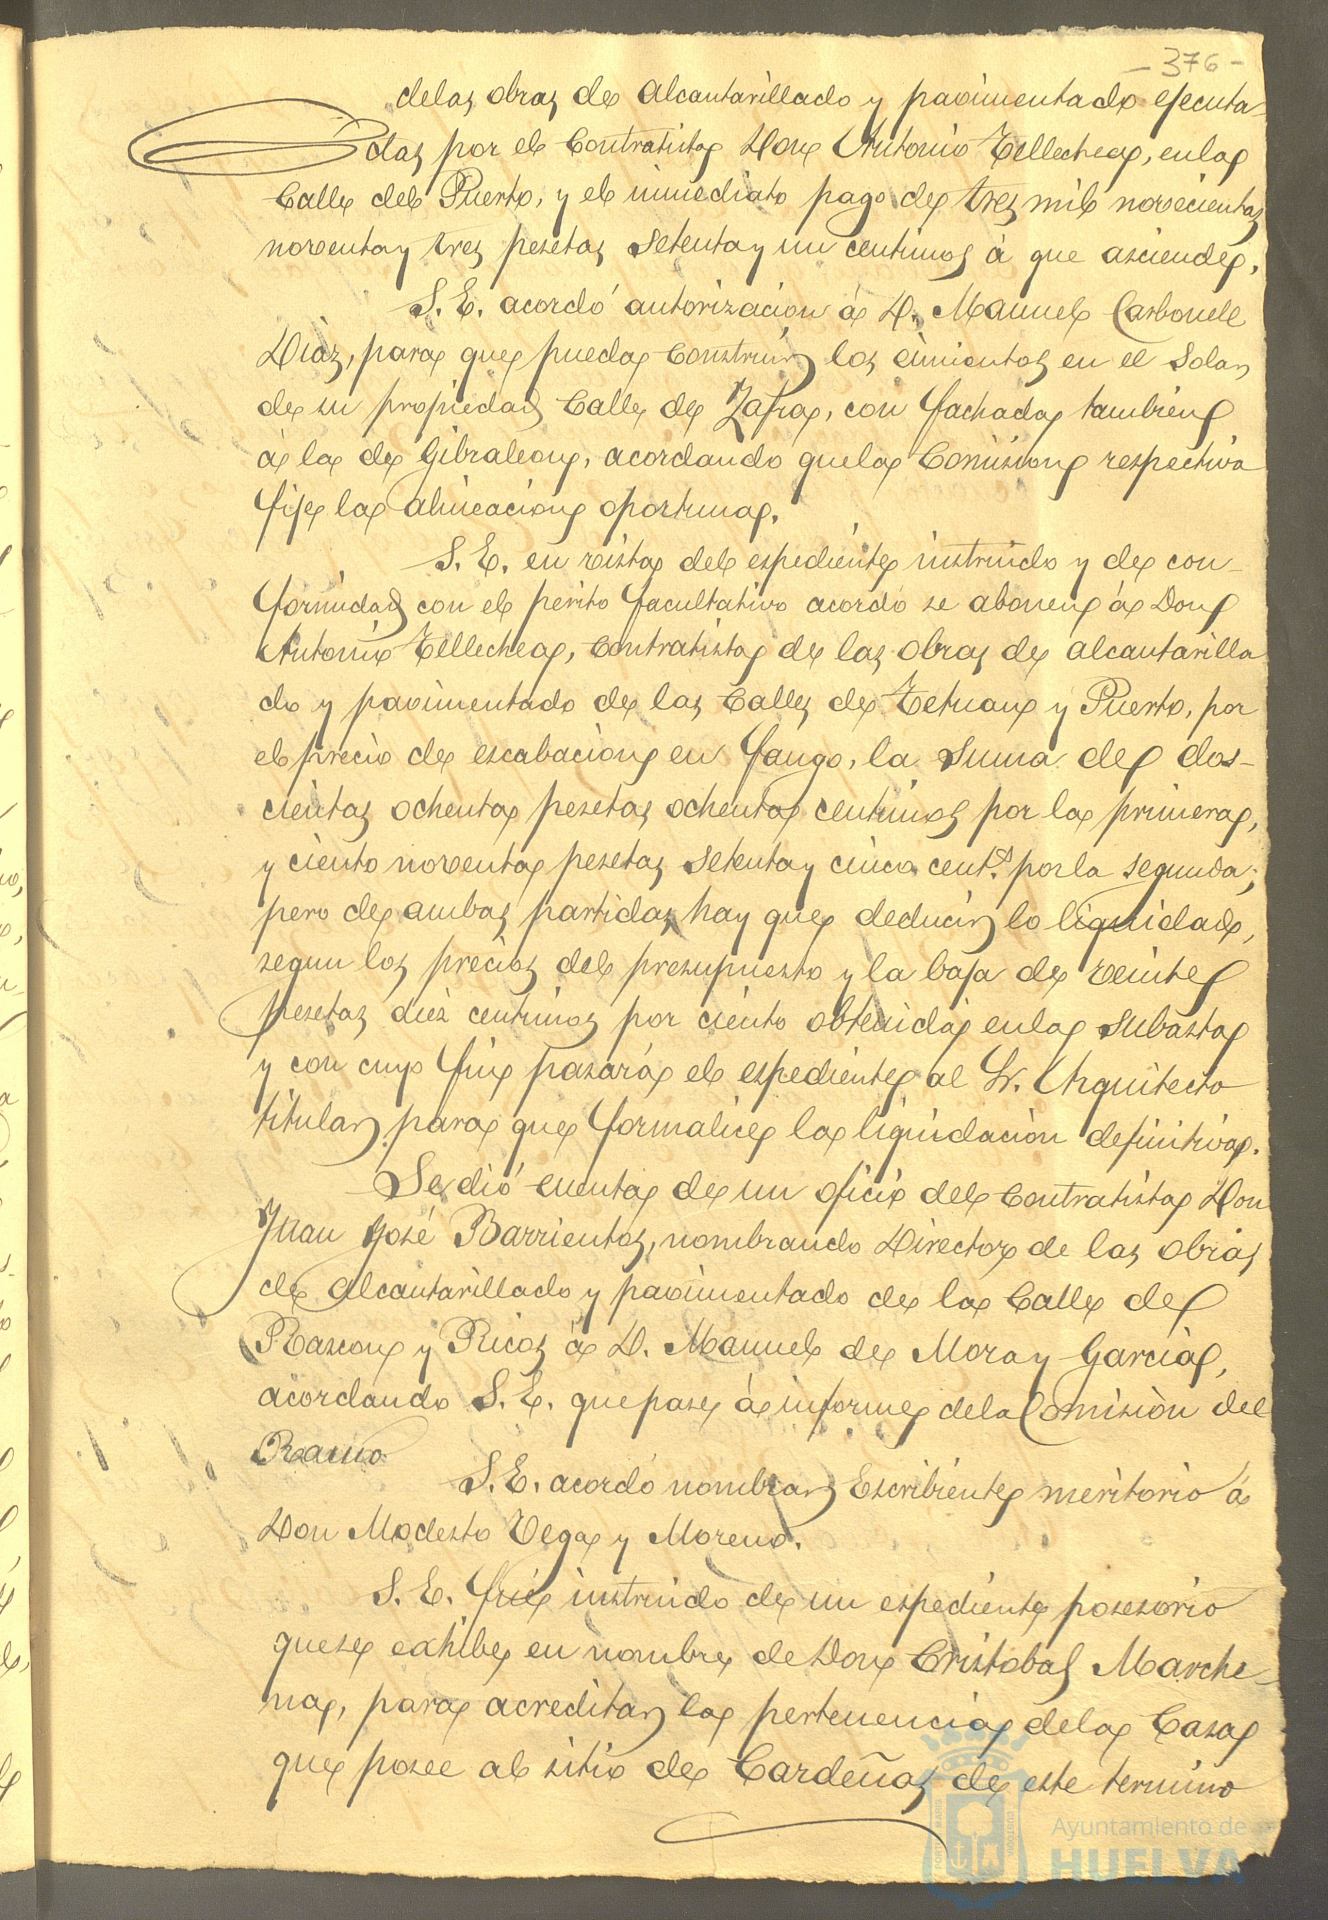 - 376 -
delas obras de alcantarillado y pavimentado ejecuta-
das por el Contratista Don Antonio Tellechea, enla
Calle del Puerto, y el inmediato pago de tres mil novecientas
noventa y tres pesetas setenta y un centimos á que asciende.
S. E. acordó autorizacion á D. Manuel Carbonell
Diaz, para que pueda construir los cimientos en el Solar
de su propiedad Calle de Zafra, con fachada tambien
á la de Gibraleon, acordando quela Comision respectiva
fije la alineacion oportuna.
S. E. en vista del espediente instruido y de con-
formidad con el perito facultativo acordó se abonen á Don
Antonio Tellechea, Contratista de las obras de alcantarilla
do y pavimentado de las Calles de Tetuan y Puerto, por
el precio de escabacion en fango, la suma de dos-
cientas ochenta pesetas ochenta centimos por la primera,
y ciento noventa pesetas setenta y cinco cent.s por la segunda;
pero de ambas partidas hay que deducir lo liquidado,
segun los precios del presupuesto y la baja de veinte
pesetas diez centimos por ciento obtenida enla subasta
y con cuyo fin pasará el espediente al Sr. Arquitecto
titular para que formalice la liquidacion definitiva.
Se dió cuenta de un oficio del Contratista Don
Juan José Barrientos, nombrando Director de las obras
de alcantarillado y pavimentado de la Calle de
Rascon y Ricos á D. Manuel de Mora y Garcia,
acordando S. E. que pase á informe dela Comisiòn del
Ramo
S. E. acordó nombrar Escribiente meritorio á
Don Modesto Vega y Moreno.
S. E. fué instruido de un espediente posesorio
quese exhibe en nombre de Don Cristobal Marche-
na, para acreditar la pertenencia dela Casa
que posee al sitio de Cardeñas de este termino
Ayuntamiento de
HUELVA